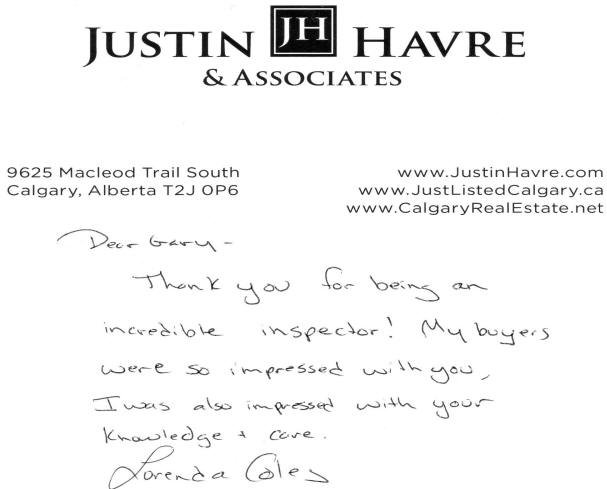 JUSTIN JH HAVRE
& ASSOCIATES
9625 Macleod Trail South
Calgary, Alberta T2J 0P6
www.JustinHavre.com
www.JustListedCalgary.ca
www.CalgaryRealEstate.net
Dear Gary -
Thank you for being an
incredible inspector! My buyers
were so impressed with you,
I was also impressed with your
knowledge + care.
Lorenda Coles